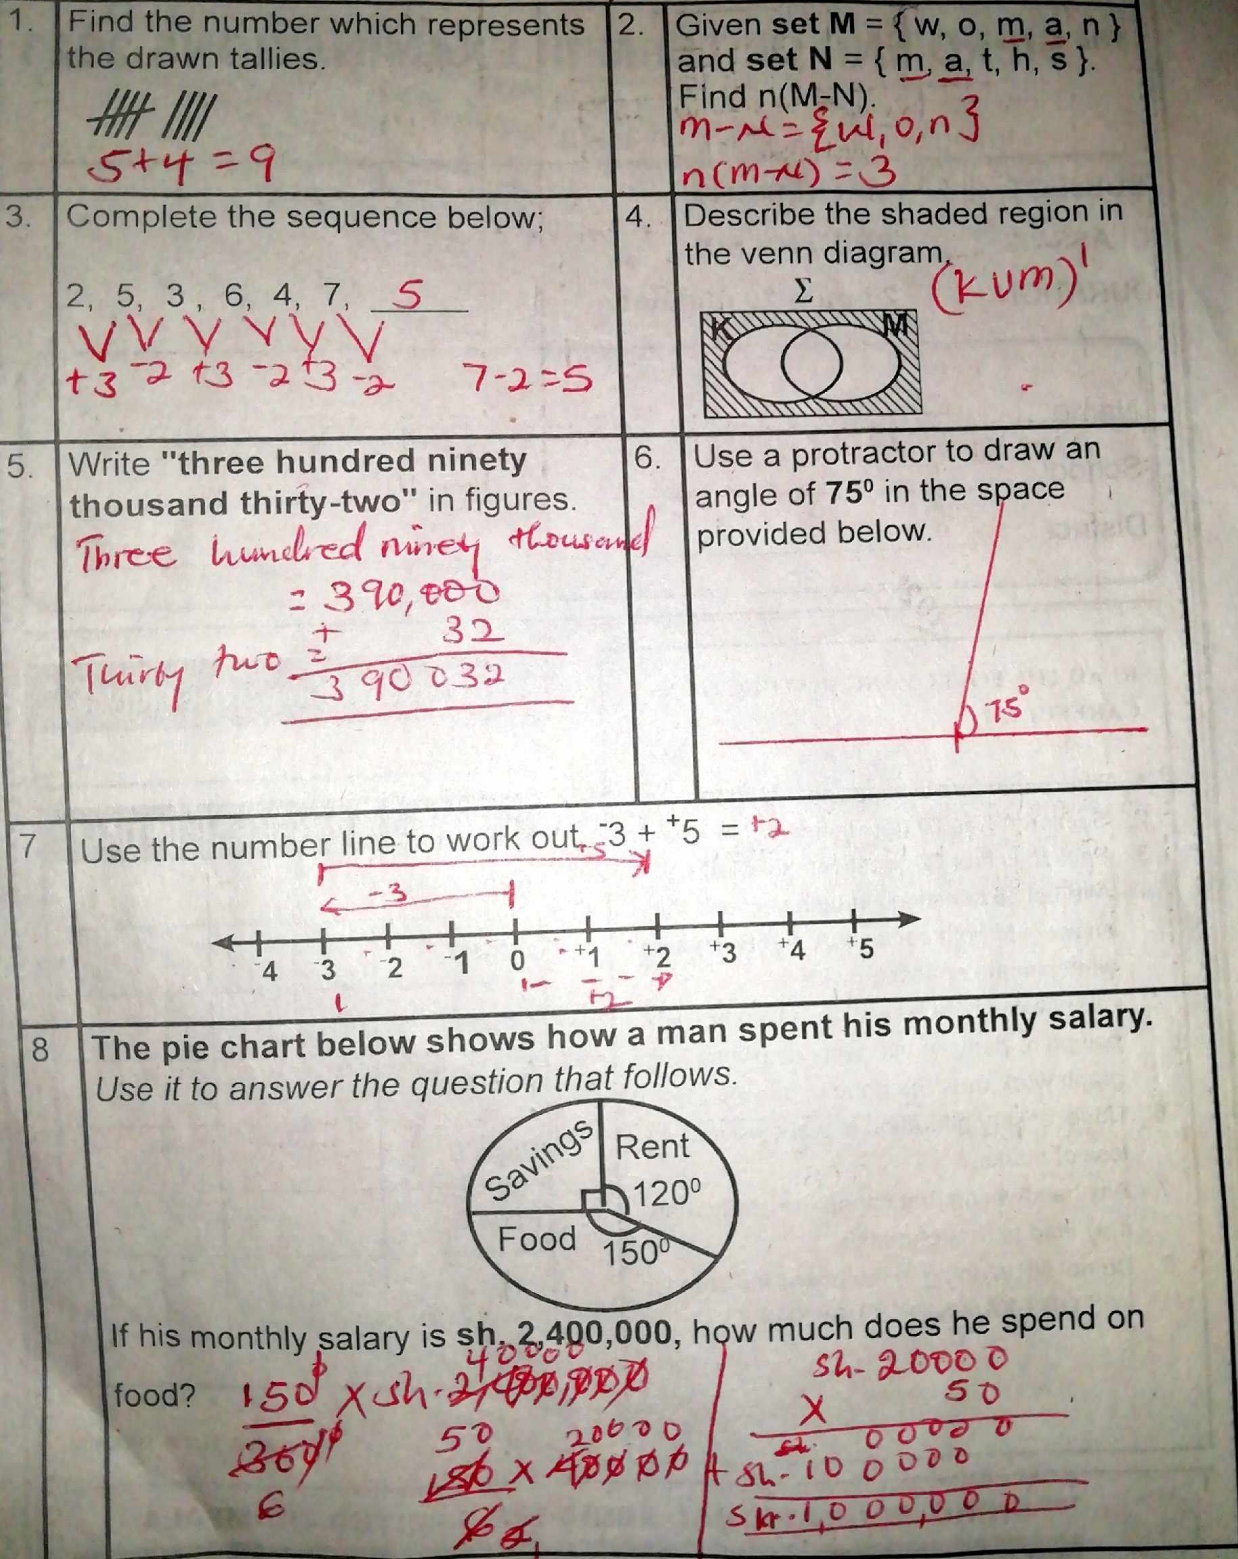 1. Find the number which represents
the drawn tallies.
5+4=9
2. Given set M = { w, o, m, a, n }
and set N = { m, a, t, h, s }.
Find n(M-N).
m-N={w, o, n}
n(m-N)=3
3. Complete the sequence below;
2, 5, 3, 6, 4, 7, 5
+3 -2 +3 -2 +3 -2 7-2=5
4. Describe the shaded region in
the venn diagram.
(KUM)'
Σ
K M
5. Write "three hundred ninety
thousand thirty-two" in figures.
Three hundred ninety thousand
= 390,000
+ 32
Thirty two =
390 032
6. Use a protractor to draw an
angle of 75⁰ in the space
provided below.
75°
7 Use the number line to work out, ⁻3 + ⁺5 = +2
+5
-3
⁻4 ⁻3 ⁻2 ⁻1 0 ⁺1 ⁺2 ⁺3 ⁺4 ⁺5
+2
8 The pie chart below shows how a man spent his monthly salary.
Use it to answer the question that follows.
Savings Rent
120⁰
Food 150⁰
If his monthly salary is sh. 2,400,000, how much does he spend on
food?
40000
150 x sh. 2,400,000
360
6
50 20000
150 x 40000
6
sh. 20000
x 50
sh. 00000
+ sh. 100000
shr. 1,000,000